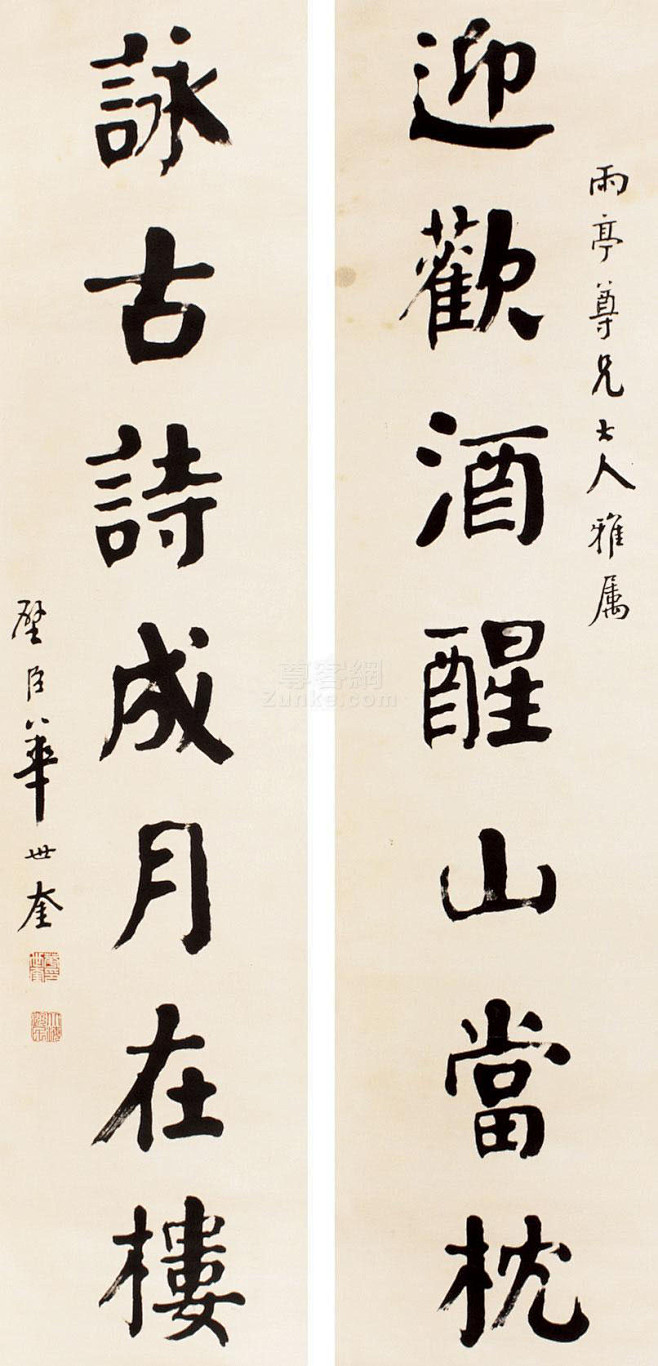 雨亭尊兄大人雅属
迎歡酒醒山當枕
詠古詩成月在樓
璧臣華世奎
尊客網
Zunke.com